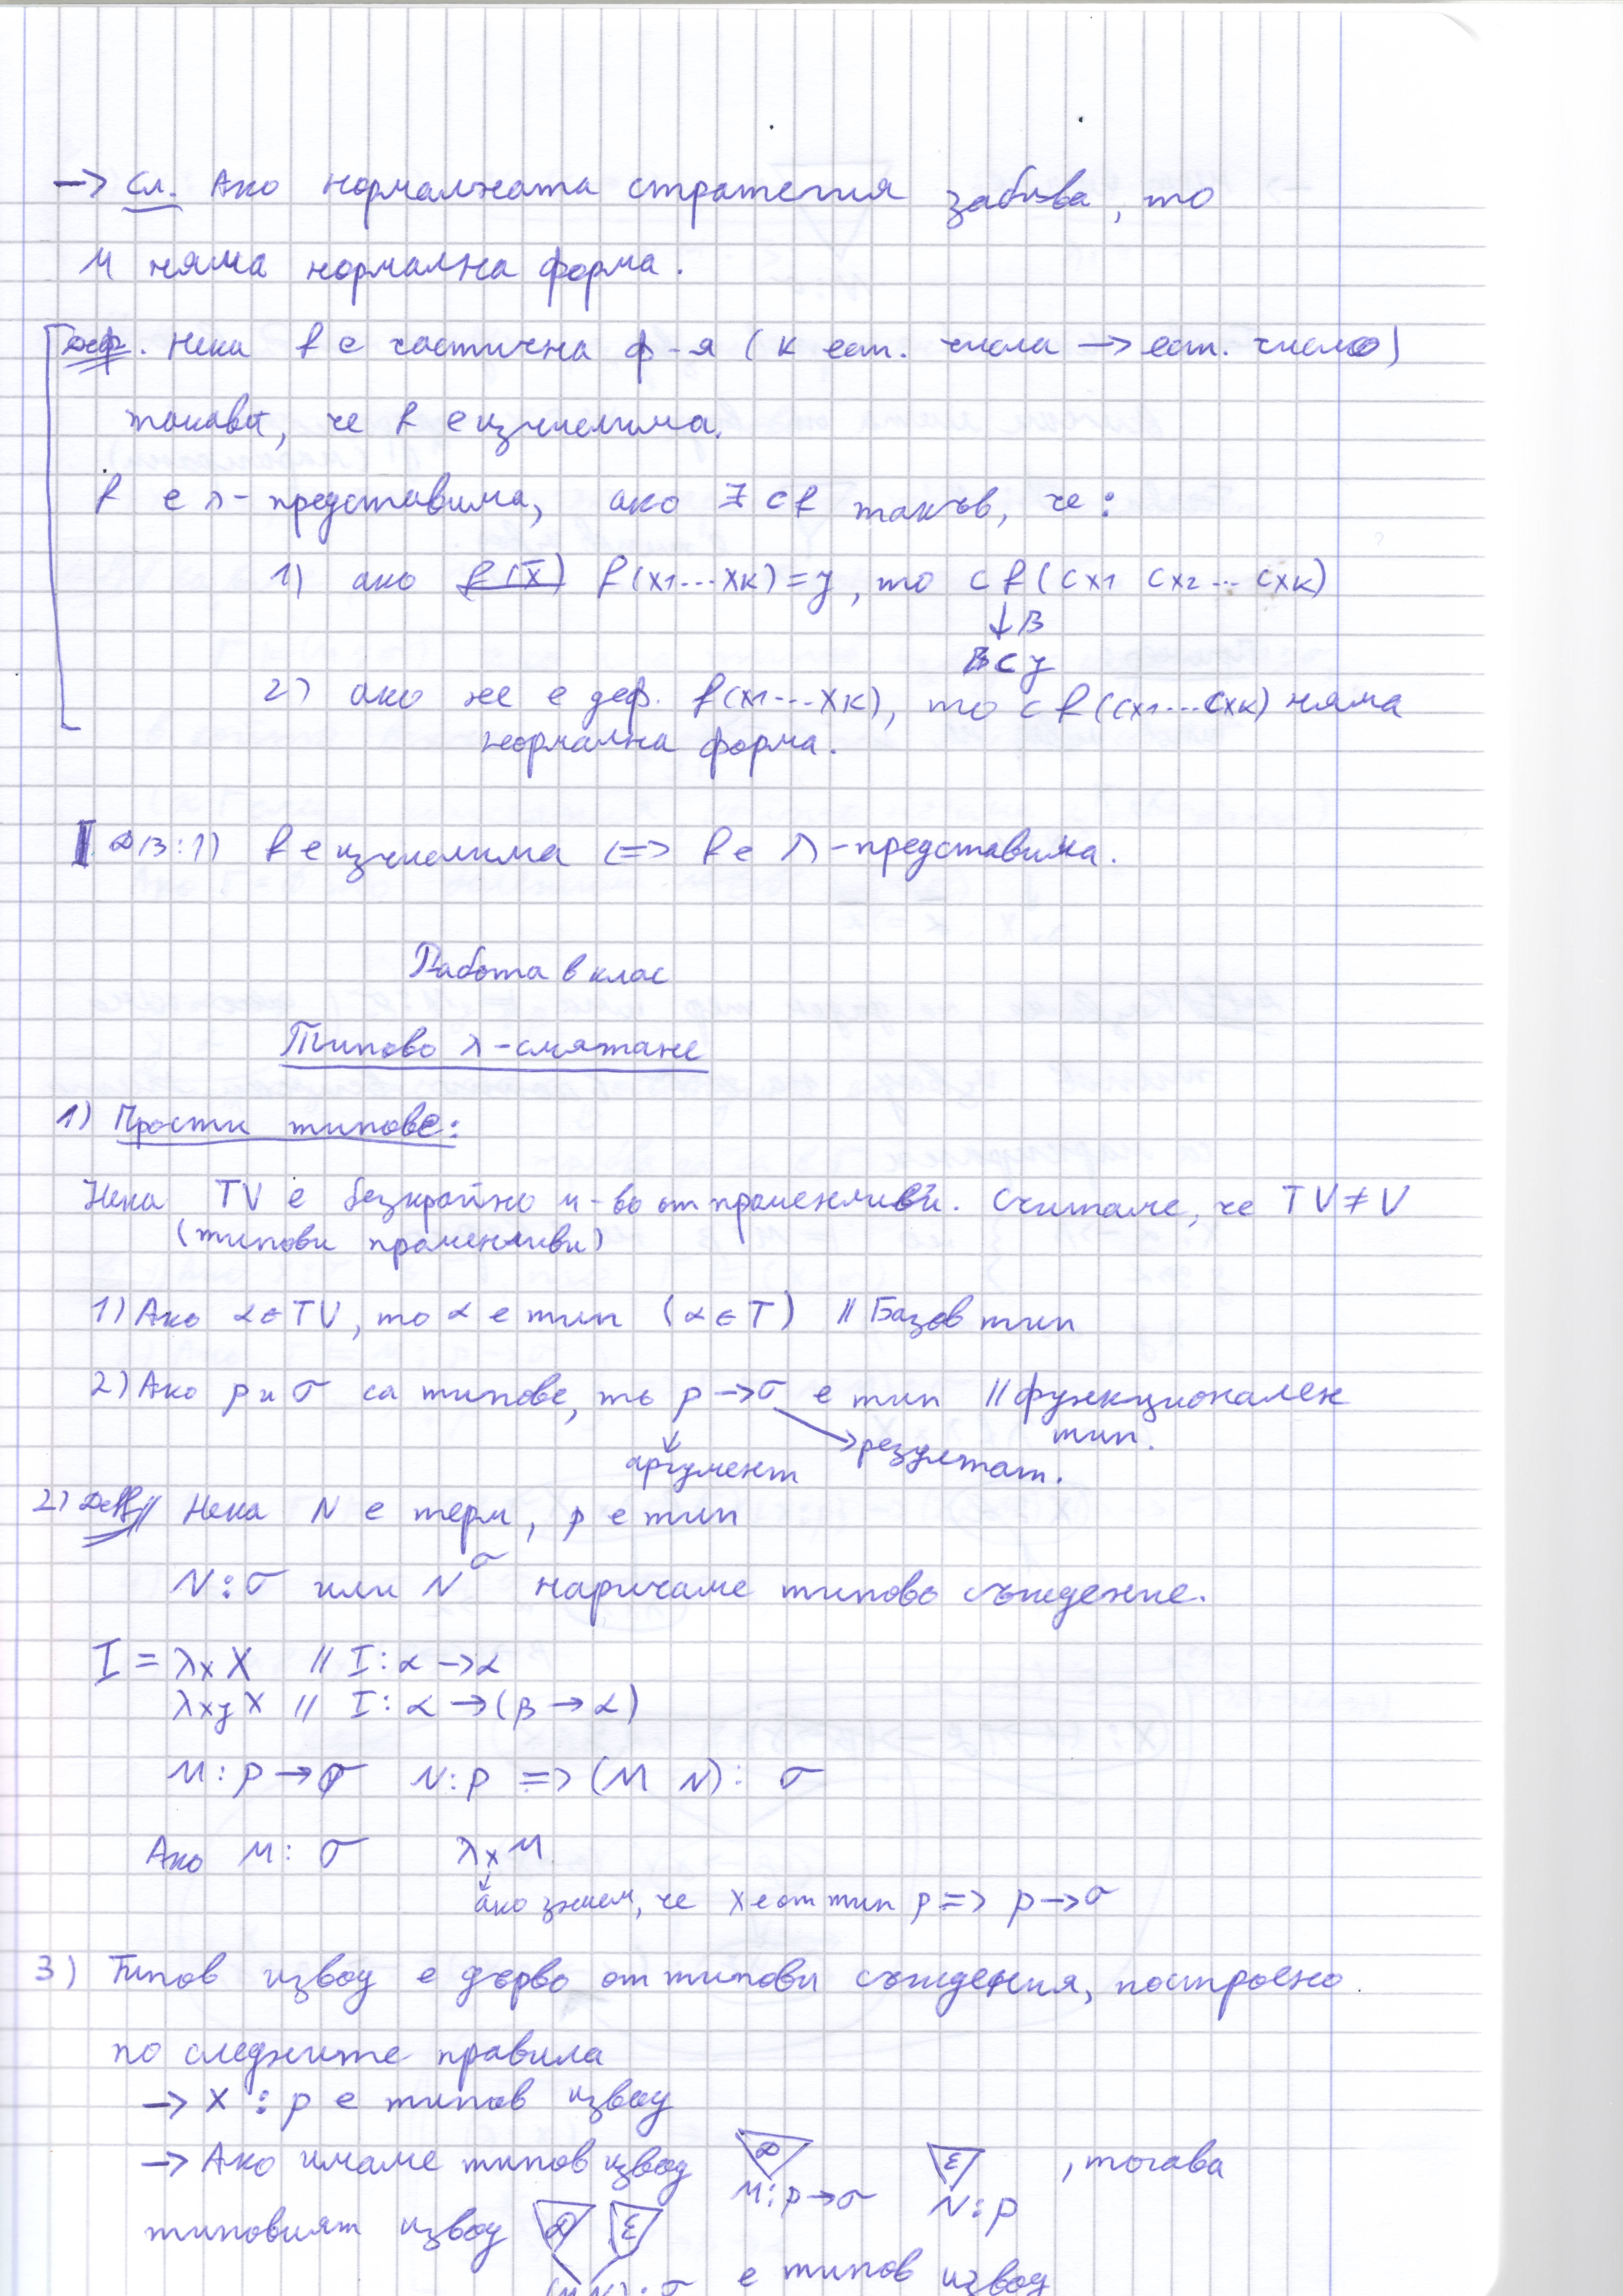 → Сл. Ако нормалната стратегия забива, то
M няма нормална форма.
Деф. Нека f е частична ф-я (k ест. числа → ест. число)
такава, че f е изчислима.
f е λ-представима, ако ∃ cf такъв, че:
1) ако f(x̄) f(x1...xk)=y, то cf(cx1 cx2...cxk)
↓β
cy
2) ако не е деф. f(x1...xk), то cf(cx1...cxk) няма
нормална форма.
I. ДВ:1) f е изчислима <=> f е λ-представима.
Работа в клас
Типово λ-смятане
1) Прости типове:
Нека TV е безкрайно м-во от променливи. Считаме, че TV≠V
(типови променливи)
1) Ако α∈TV, то α е тип (α∈T) // Базов тип
2) Ако ρ и σ са типове, то ρ→σ е тип // функционален
тип.
аргумент результат.
2) Деф// Нека N е терм, ρ е тип
N:σ или N^σ наричаме типово съждение.
I = λx x // I: α→α
λxy x // I: α→(β→α)
M:ρ→σ N:ρ => (M N): σ
Ако M: σ λx M
ако знаем, че x е от тип ρ => ρ→σ
3) Типов извод е дърво от типови съждения, построено
по следните правила
→ x:ρ е типов извод
→ Ако имаме типов извод D E , тогава
M:ρ→σ N:ρ
типовият извод D E
(M N):σ е типов извод